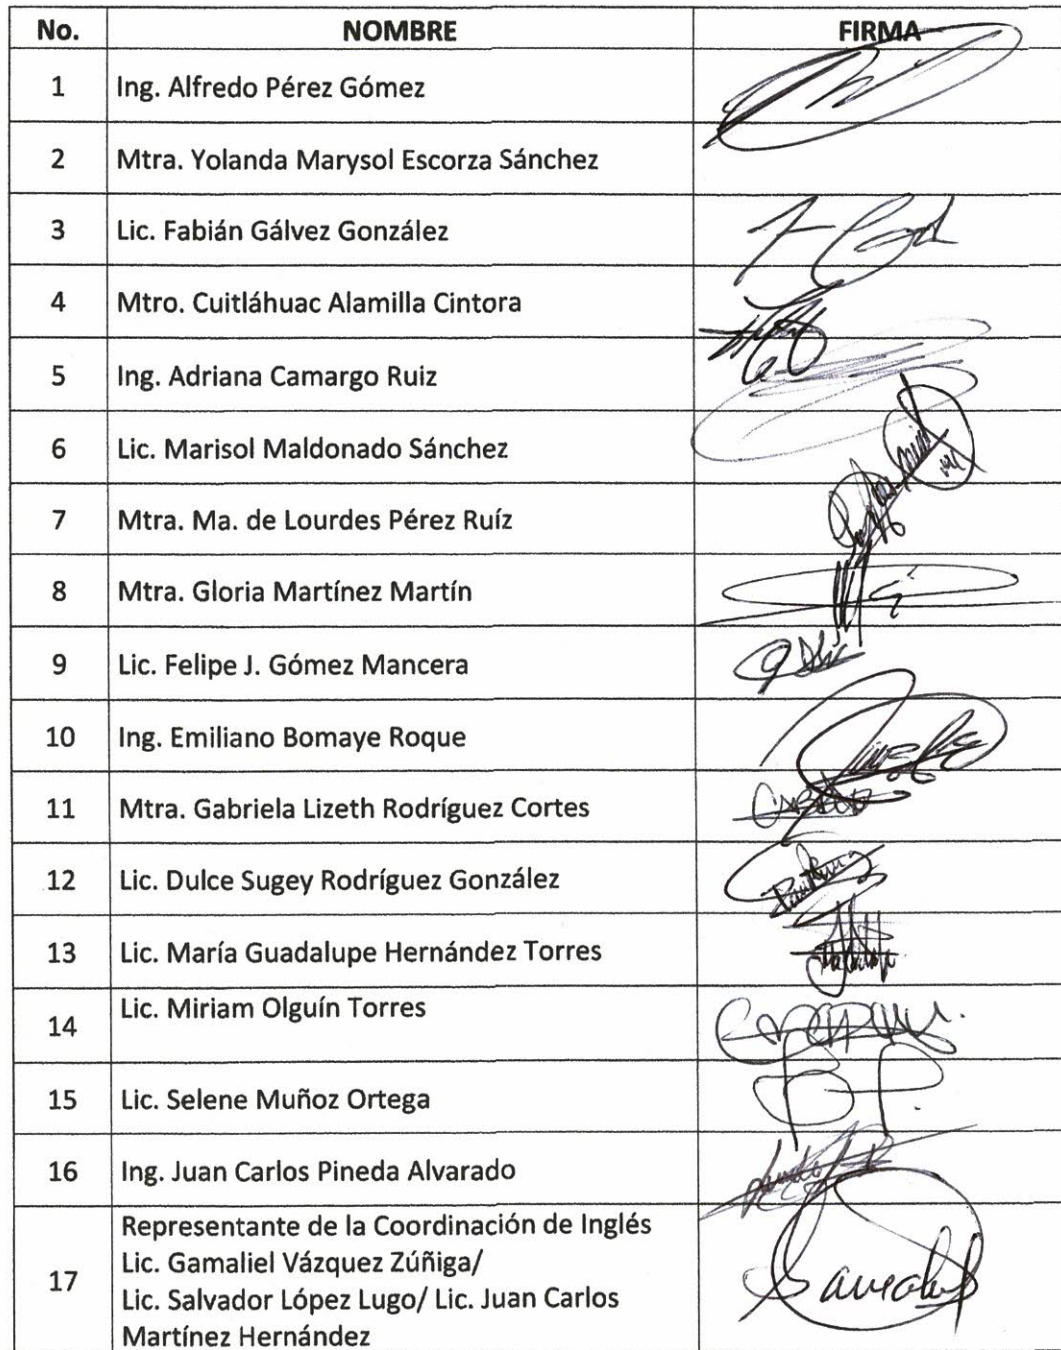 No. NOMBRE FIRMA
1 Ing. Alfredo Pérez Gómez
2 Mtra. Yolanda Marysol Escorza Sánchez
3 Lic. Fabián Gálvez González
4 Mtro. Cuitláhuac Alamilla Cintora
5 Ing. Adriana Camargo Ruiz
6 Lic. Marisol Maldonado Sánchez
7 Mtra. Ma. de Lourdes Pérez Ruíz
8 Mtra. Gloria Martínez Martín
9 Lic. Felipe J. Gómez Mancera
10 Ing. Emiliano Bomaye Roque
11 Mtra. Gabriela Lizeth Rodríguez Cortes
12 Lic. Dulce Sugey Rodríguez González
13 Lic. María Guadalupe Hernández Torres
14 Lic. Miriam Olguín Torres
15 Lic. Selene Muñoz Ortega
16 Ing. Juan Carlos Pineda Alvarado
17 Representante de la Coordinación de Inglés
Lic. Gamaliel Vázquez Zúñiga/
Lic. Salvador López Lugo/ Lic. Juan Carlos
Martínez Hernández